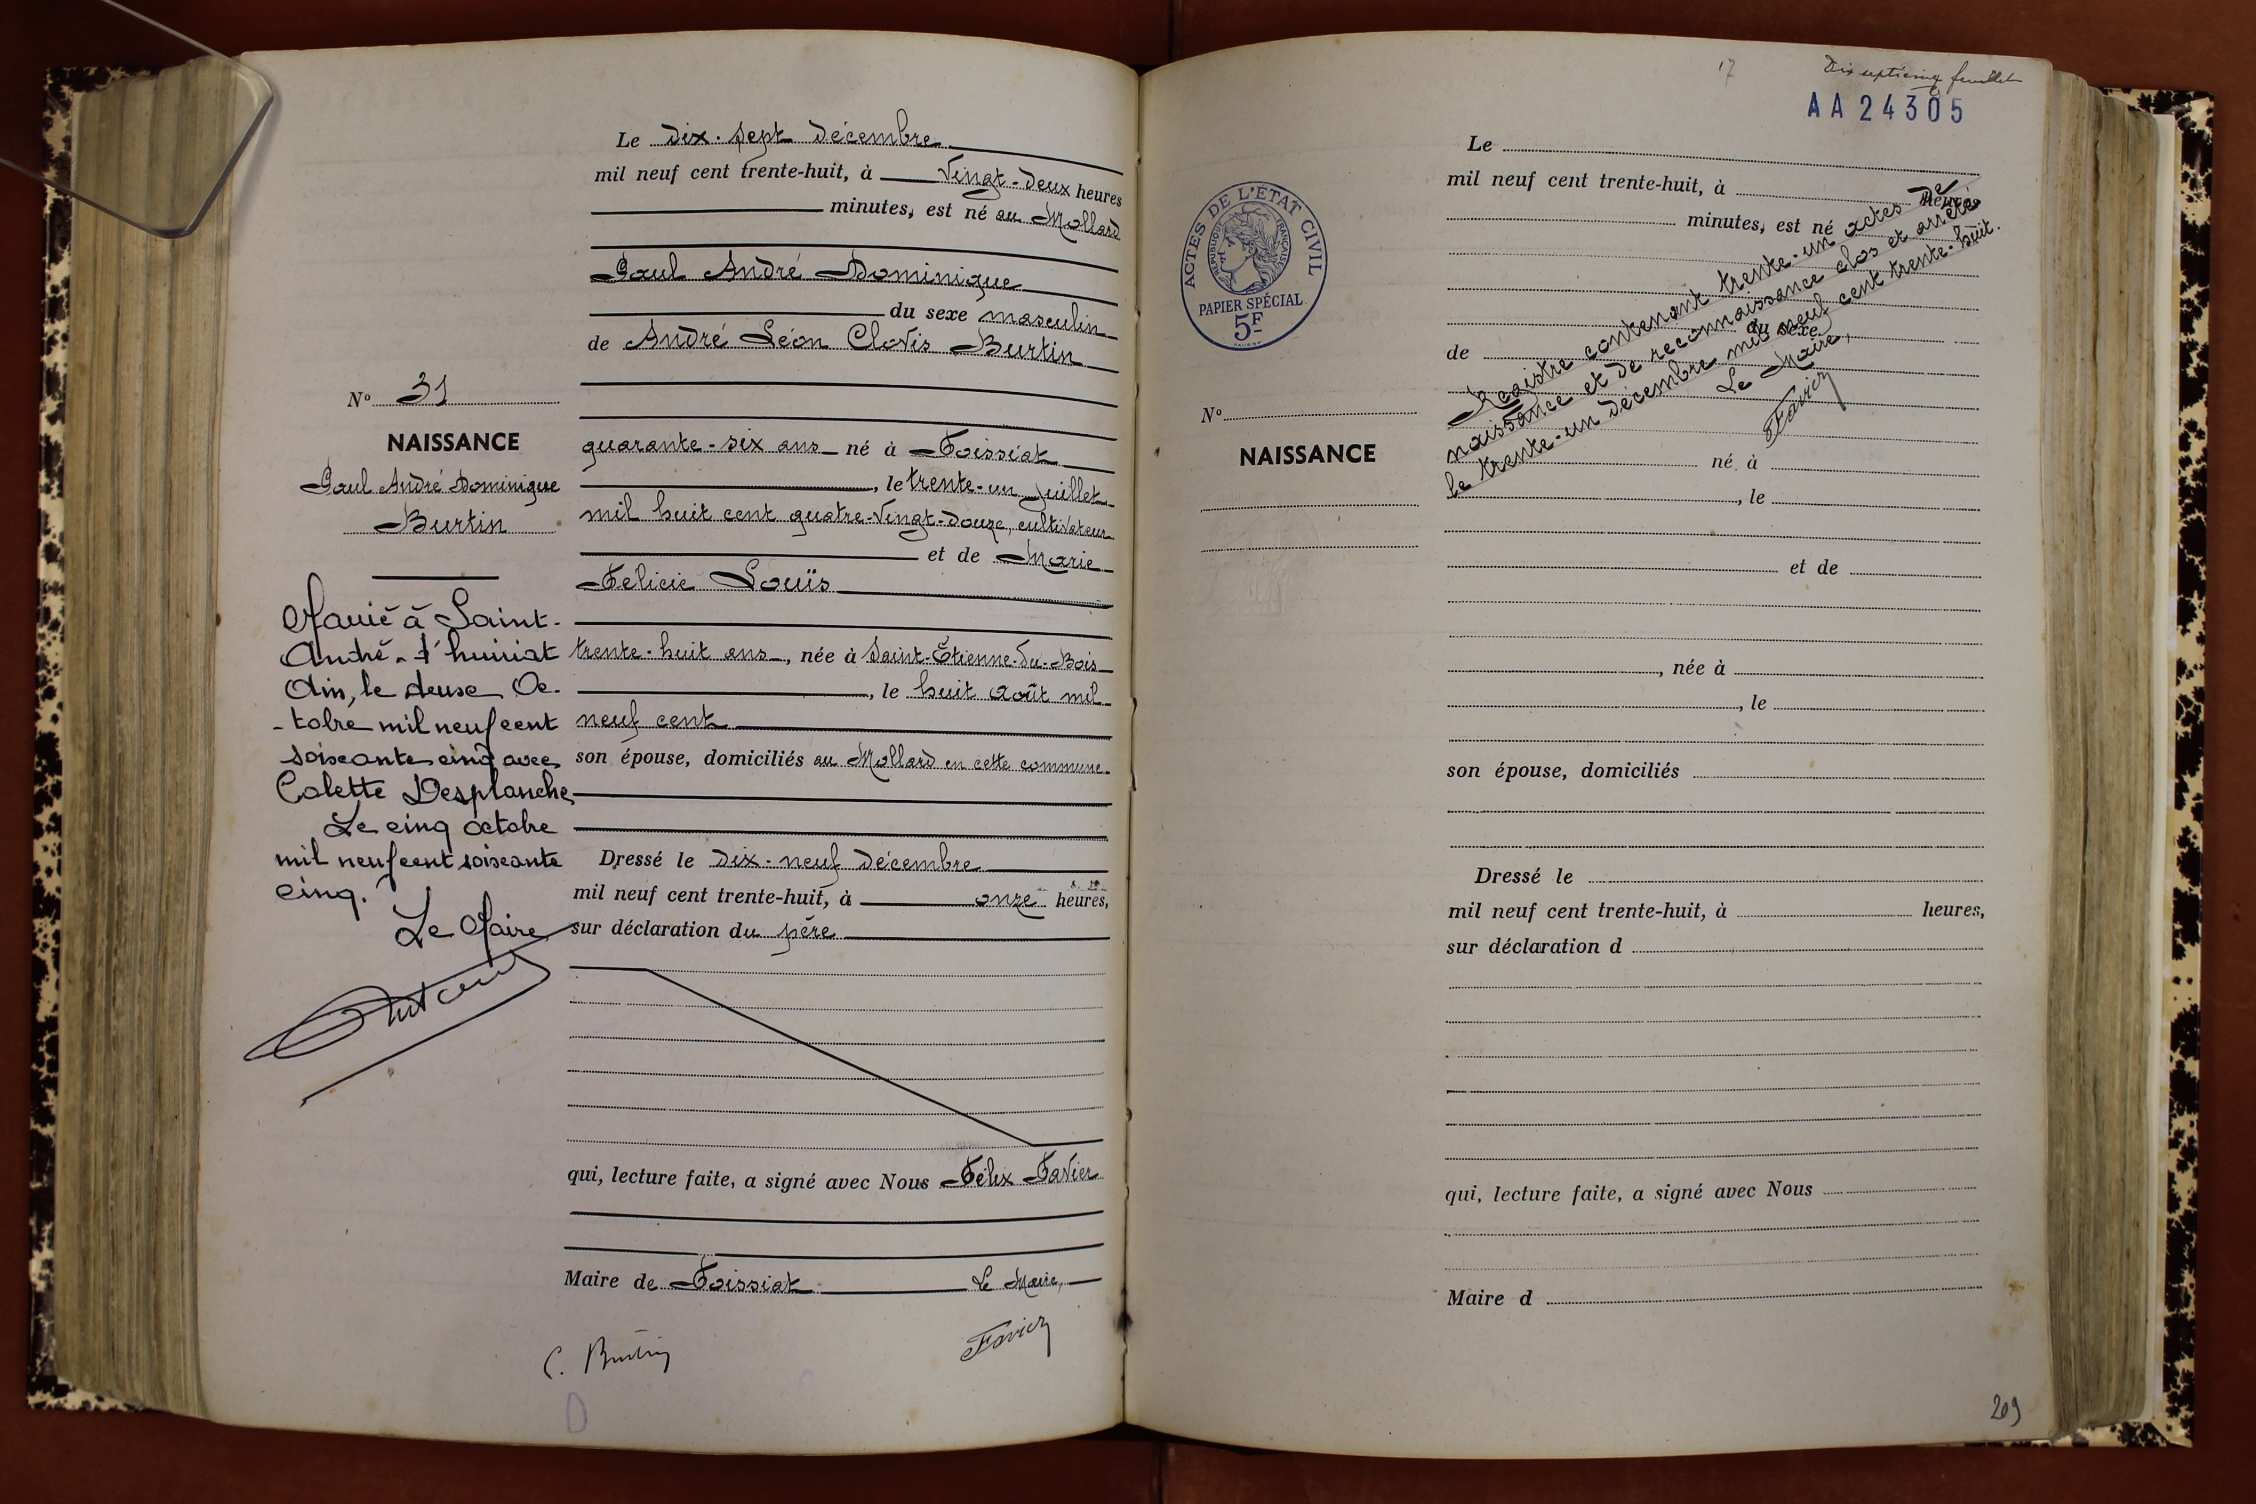 Le dix-sept décembre
mil neuf cent trente-huit, à vingt-deux heures
minutes, est né au Mollard
Paul André Dominique
du sexe masculin
de André Léon Clovis Burtin
quarante-six ans né à Foissiat
, le trente-un juillet
mil huit cent quatre-vingt-douze, cultivateur
et de Marie
Félicie Louis
trente-huit ans, née à Saint-Étienne-du-Bois
, le huit août mil
neuf cent
son épouse, domiciliés au Mollard en cette commune.
Dressé le dix-neuf décembre
mil neuf cent trente-huit, à onze heures,
sur déclaration du père
qui, lecture faite, a signé avec Nous Félix Favier
Maire de Foissiat Le Maire,
C. Burtin Favier
N° 31
NAISSANCE
Paul André Dominique
Burtin
Marié à Saint-
André-d'huiriat
Ain, le deuxe Oc-
-tobre mil neuf cent
soixante cinq avec
Colette Desplanche
Le cinq octobre
mil neuf cent soixante
cinq.
Le Maire
17
Dix septième feuillet
AA24305
ACTES DE L'ÉTAT CIVIL
RÉPUBLIQUE FRANÇAISE
PAPIER SPÉCIAL
5F
N°
NAISSANCE
Le
mil neuf cent trente-huit, à heures
minutes, est né
du sexe
de
né à
, le
et de
, née à
, le
son épouse, domiciliés
Dressé le
mil neuf cent trente-huit, à heures,
sur déclaration d
qui, lecture faite, a signé avec Nous
Maire d
Registre contenant trente-un actes de
naissance et de reconnaissance clos et arrêté
le trente-un décembre mil neuf cent trente-huit.
Le Maire,
Favier
209